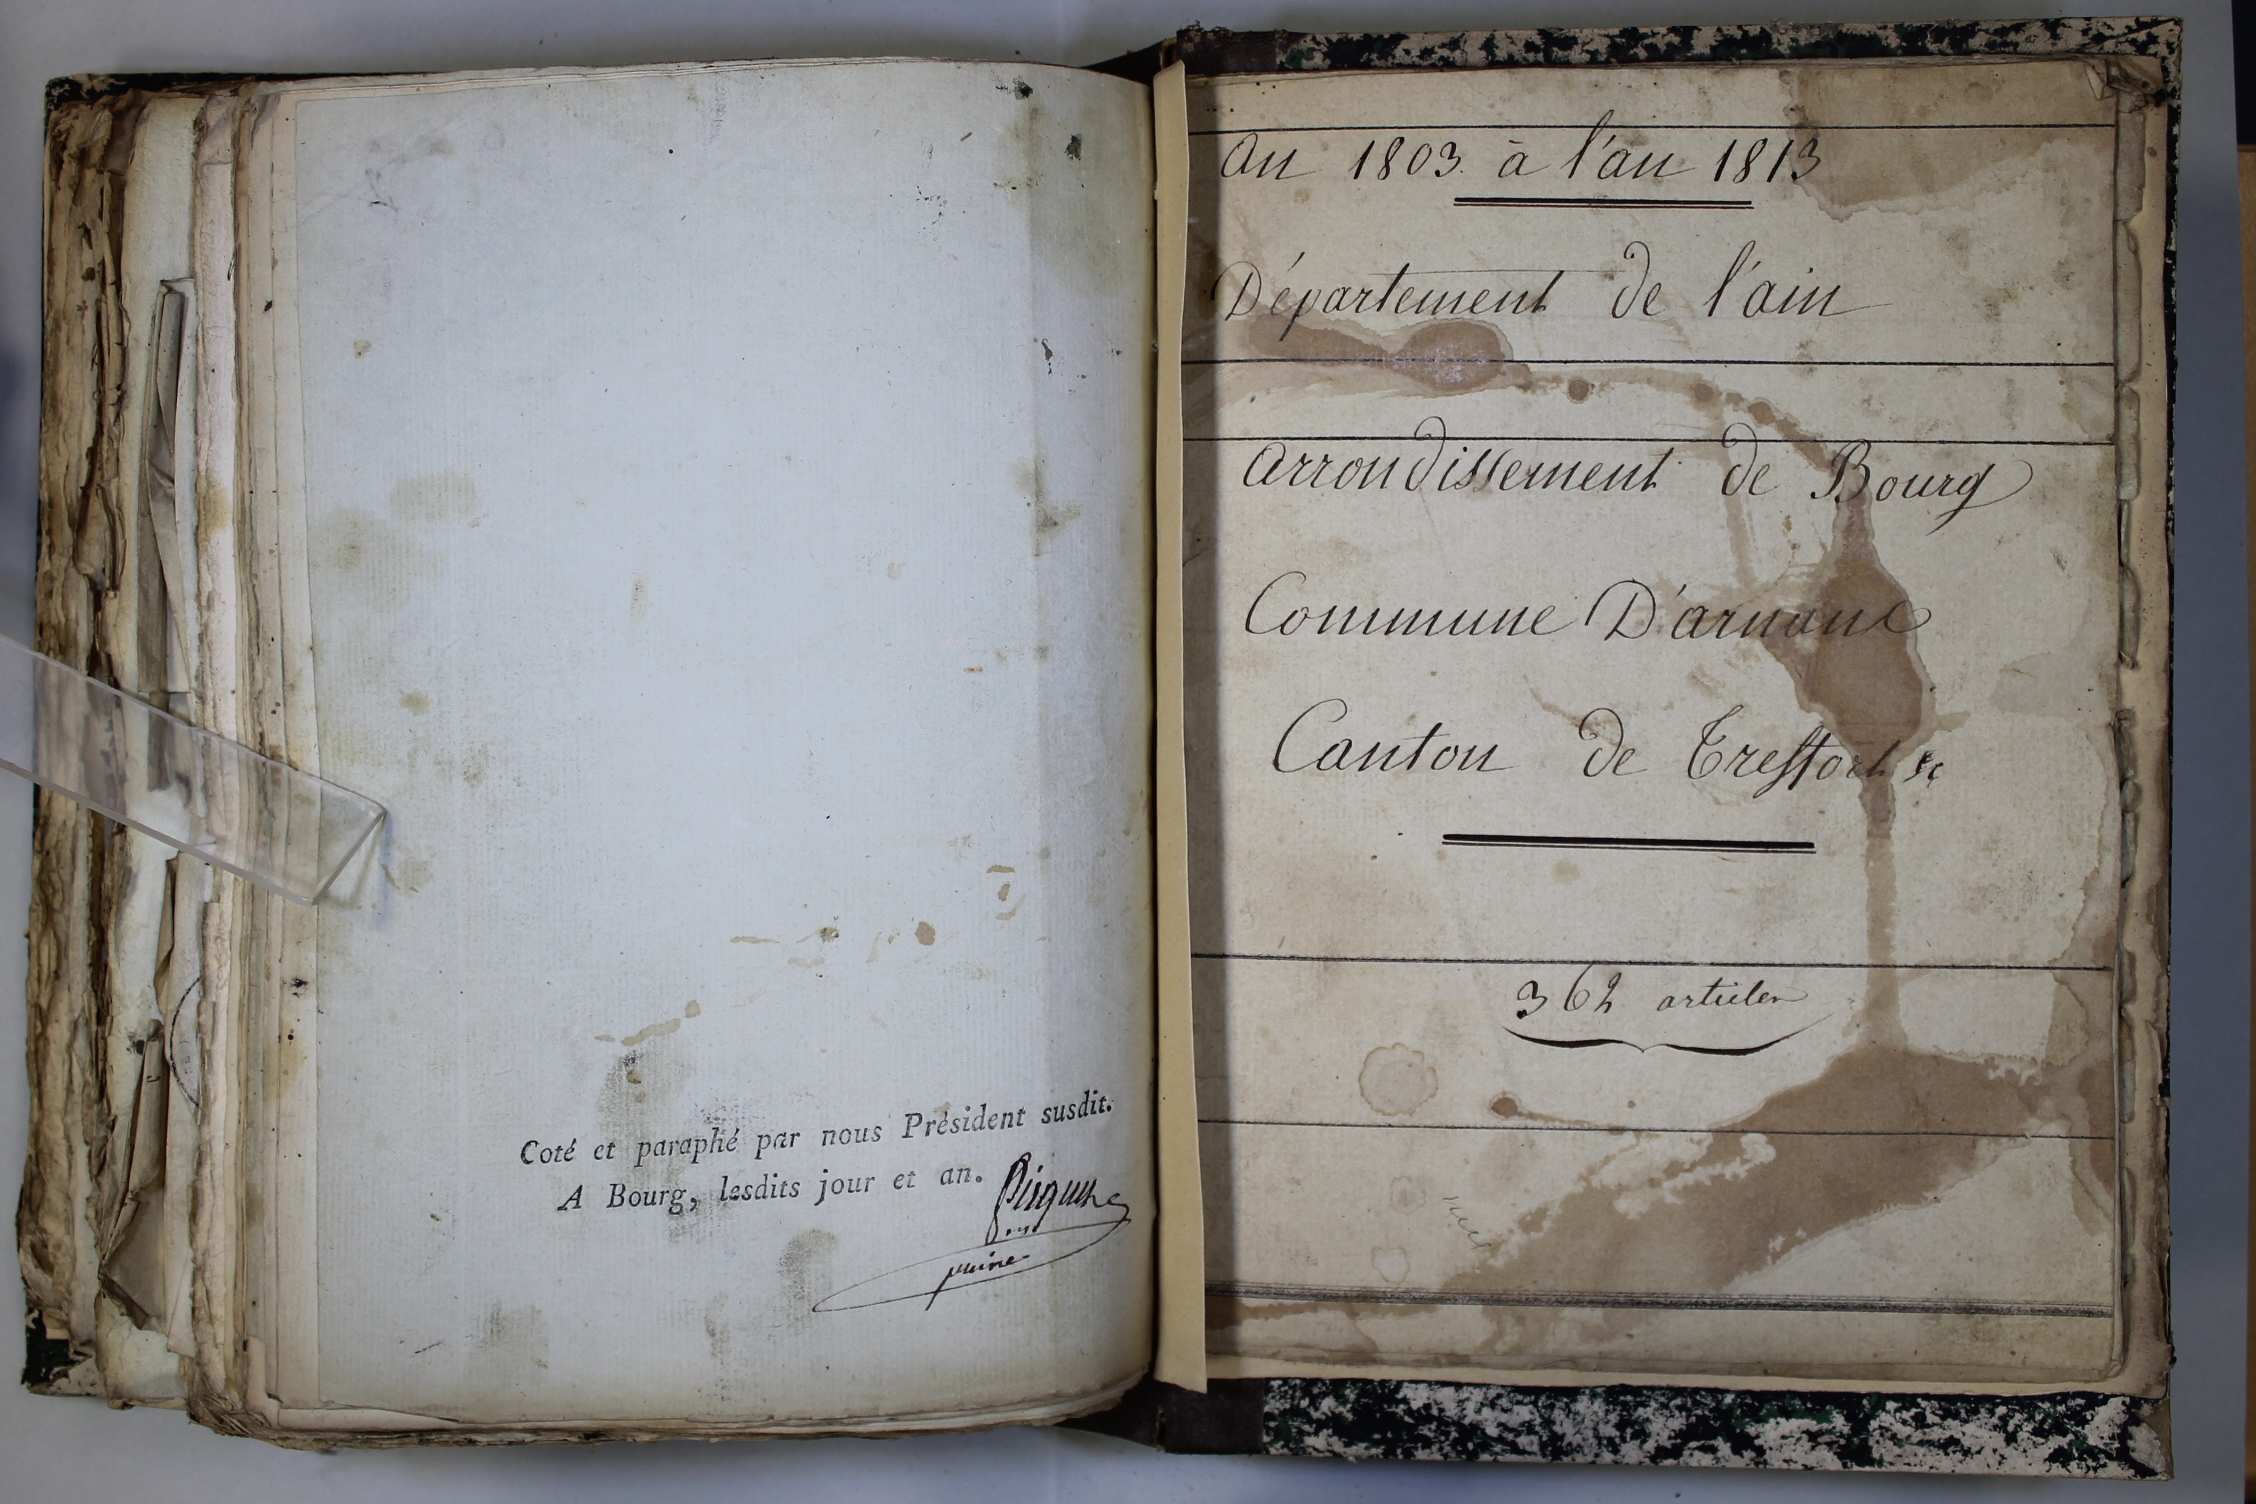 Coté et paraphé par nous Président susdit.
A Bourg, lesdits jour et an.
an 1803 à l'an 1813
Département de l'ain
arrondissement de Bourg
Commune D'arnans
Canton de Treffort
362 articles